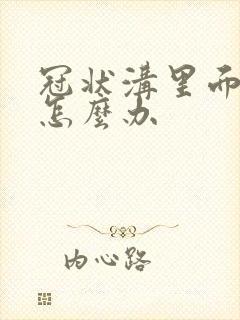 冠状溝里而
怎麼办
内心路